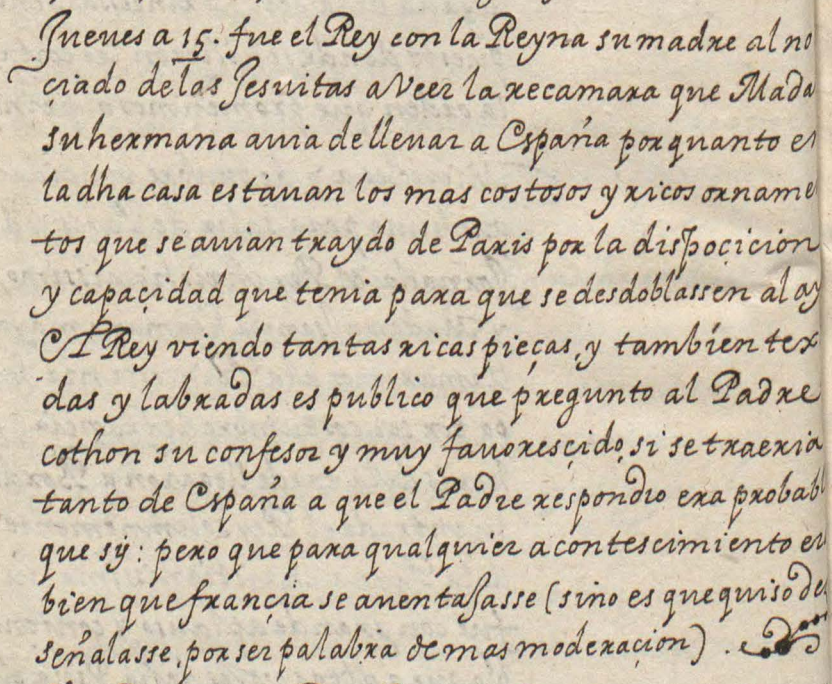 Jueves a 15. fue el Rey con la Reyna su madre al no
çiado de las Jesuitas a Veer la recamara que Mada
su hermana auia de lleuar a España por quanto en
la dha casa estauan los mas costosos y ricos orname
tos que se auian traydo de Paris por la dispoçicion
y capaçidad que tenia para que se desdoblassen al ay
El Rey viendo tantas ricas pieças, y tambien tex
das y labradas es publico que pregunto al Padre
cothon su confesor y muy fauoresçido, si se traeria
tanto de España a que el Padre respondio era probab
que sy: pero que para qualquier acontescimiento er
bien que françia se auentajasse (sino es que quiso de
señalasse, por ser palabra de mas moderaçion).